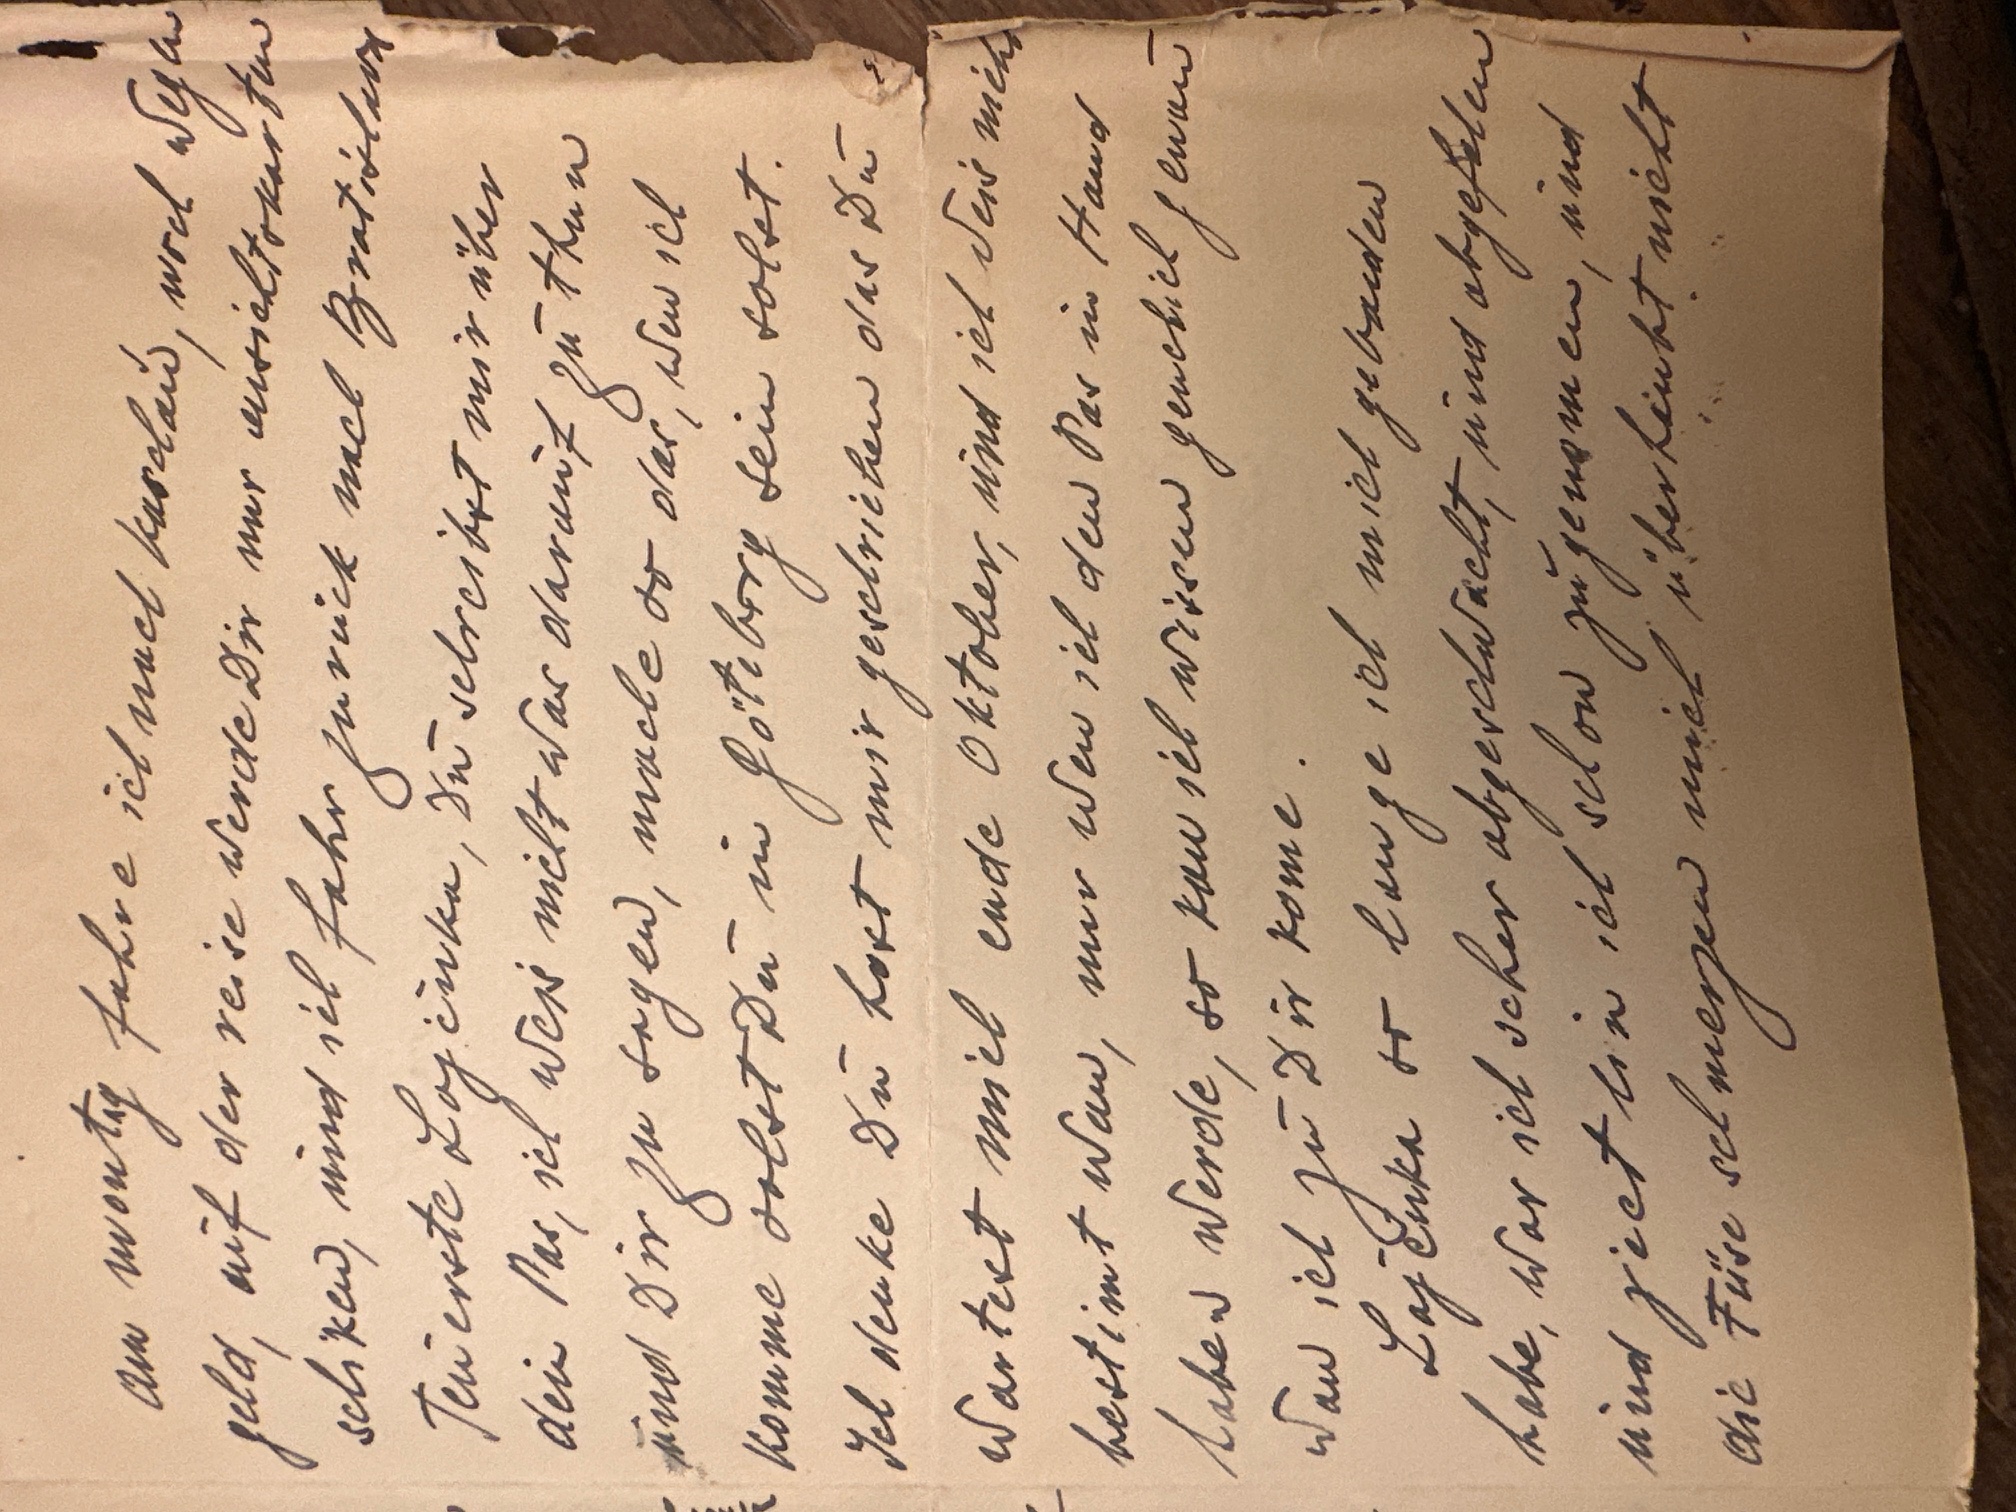 am montag fahre ich nach kaschau, noch wegen
geld, auf der reise werde Dir nur ansichtskarten
schiken, und ich fahr zurück nach Bratislava
Teuerste Lojcinka, Du schreibst mir über
dein Pas, ich weis nicht was darauf zu thun
und Dir zu sagen, mache so das, wen ich
komme solst Du in Göteborg sein solst.
Ich denke Du hast mir geschrieben das Du
wartest mich ende Oktober, und ich weis nicht
bestimt wan, nur wen ich den Pas in Hand
haben werde, so kan ich wissen genau
wan ich zu Dir kome.
Lojcinka so lange ich mich gebaden
habe, war ich seher abgeschwacht, und abgefelen
und ject bin ich schon zugenomen, und
die Füse schmerzen mich überhaubt nicht